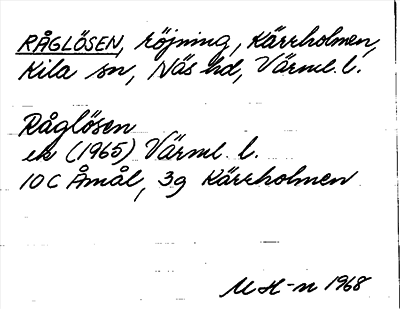 RÅGLÖSEN, röjning, Kärrholmen,
Kila sn, Näs hd, Värml. l.
Råglösen
ek (1965) Värml. l.
10 C Åmål, 3g Kärrholmen
M H-n 1968